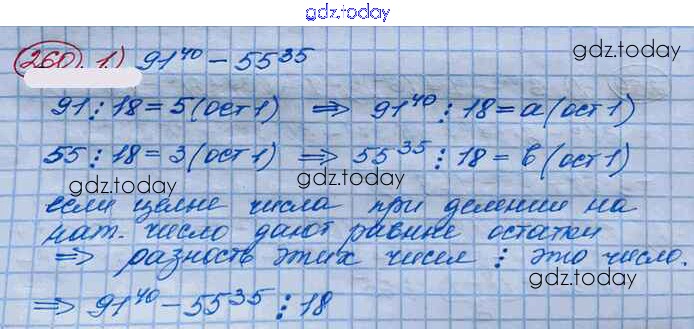 gdz.today
260. 1.) 91⁴⁰ - 55³⁵
gdz.today
91 : 18 = 5 (ост 1) ⇒ 91⁴⁰ : 18 = a (ост 1)
gdz.today
55 : 18 = 3 (ост 1) ⇒ 55³⁵ : 18 = b (ост 1)
gdz.today
gdz.today
если целые числа при делении на
нат. число дают равные остатки
⇒ разность этих чисел ⋮ это число.
gdz.today
⇒ 91⁴⁰ - 55³⁵ ⋮ 18